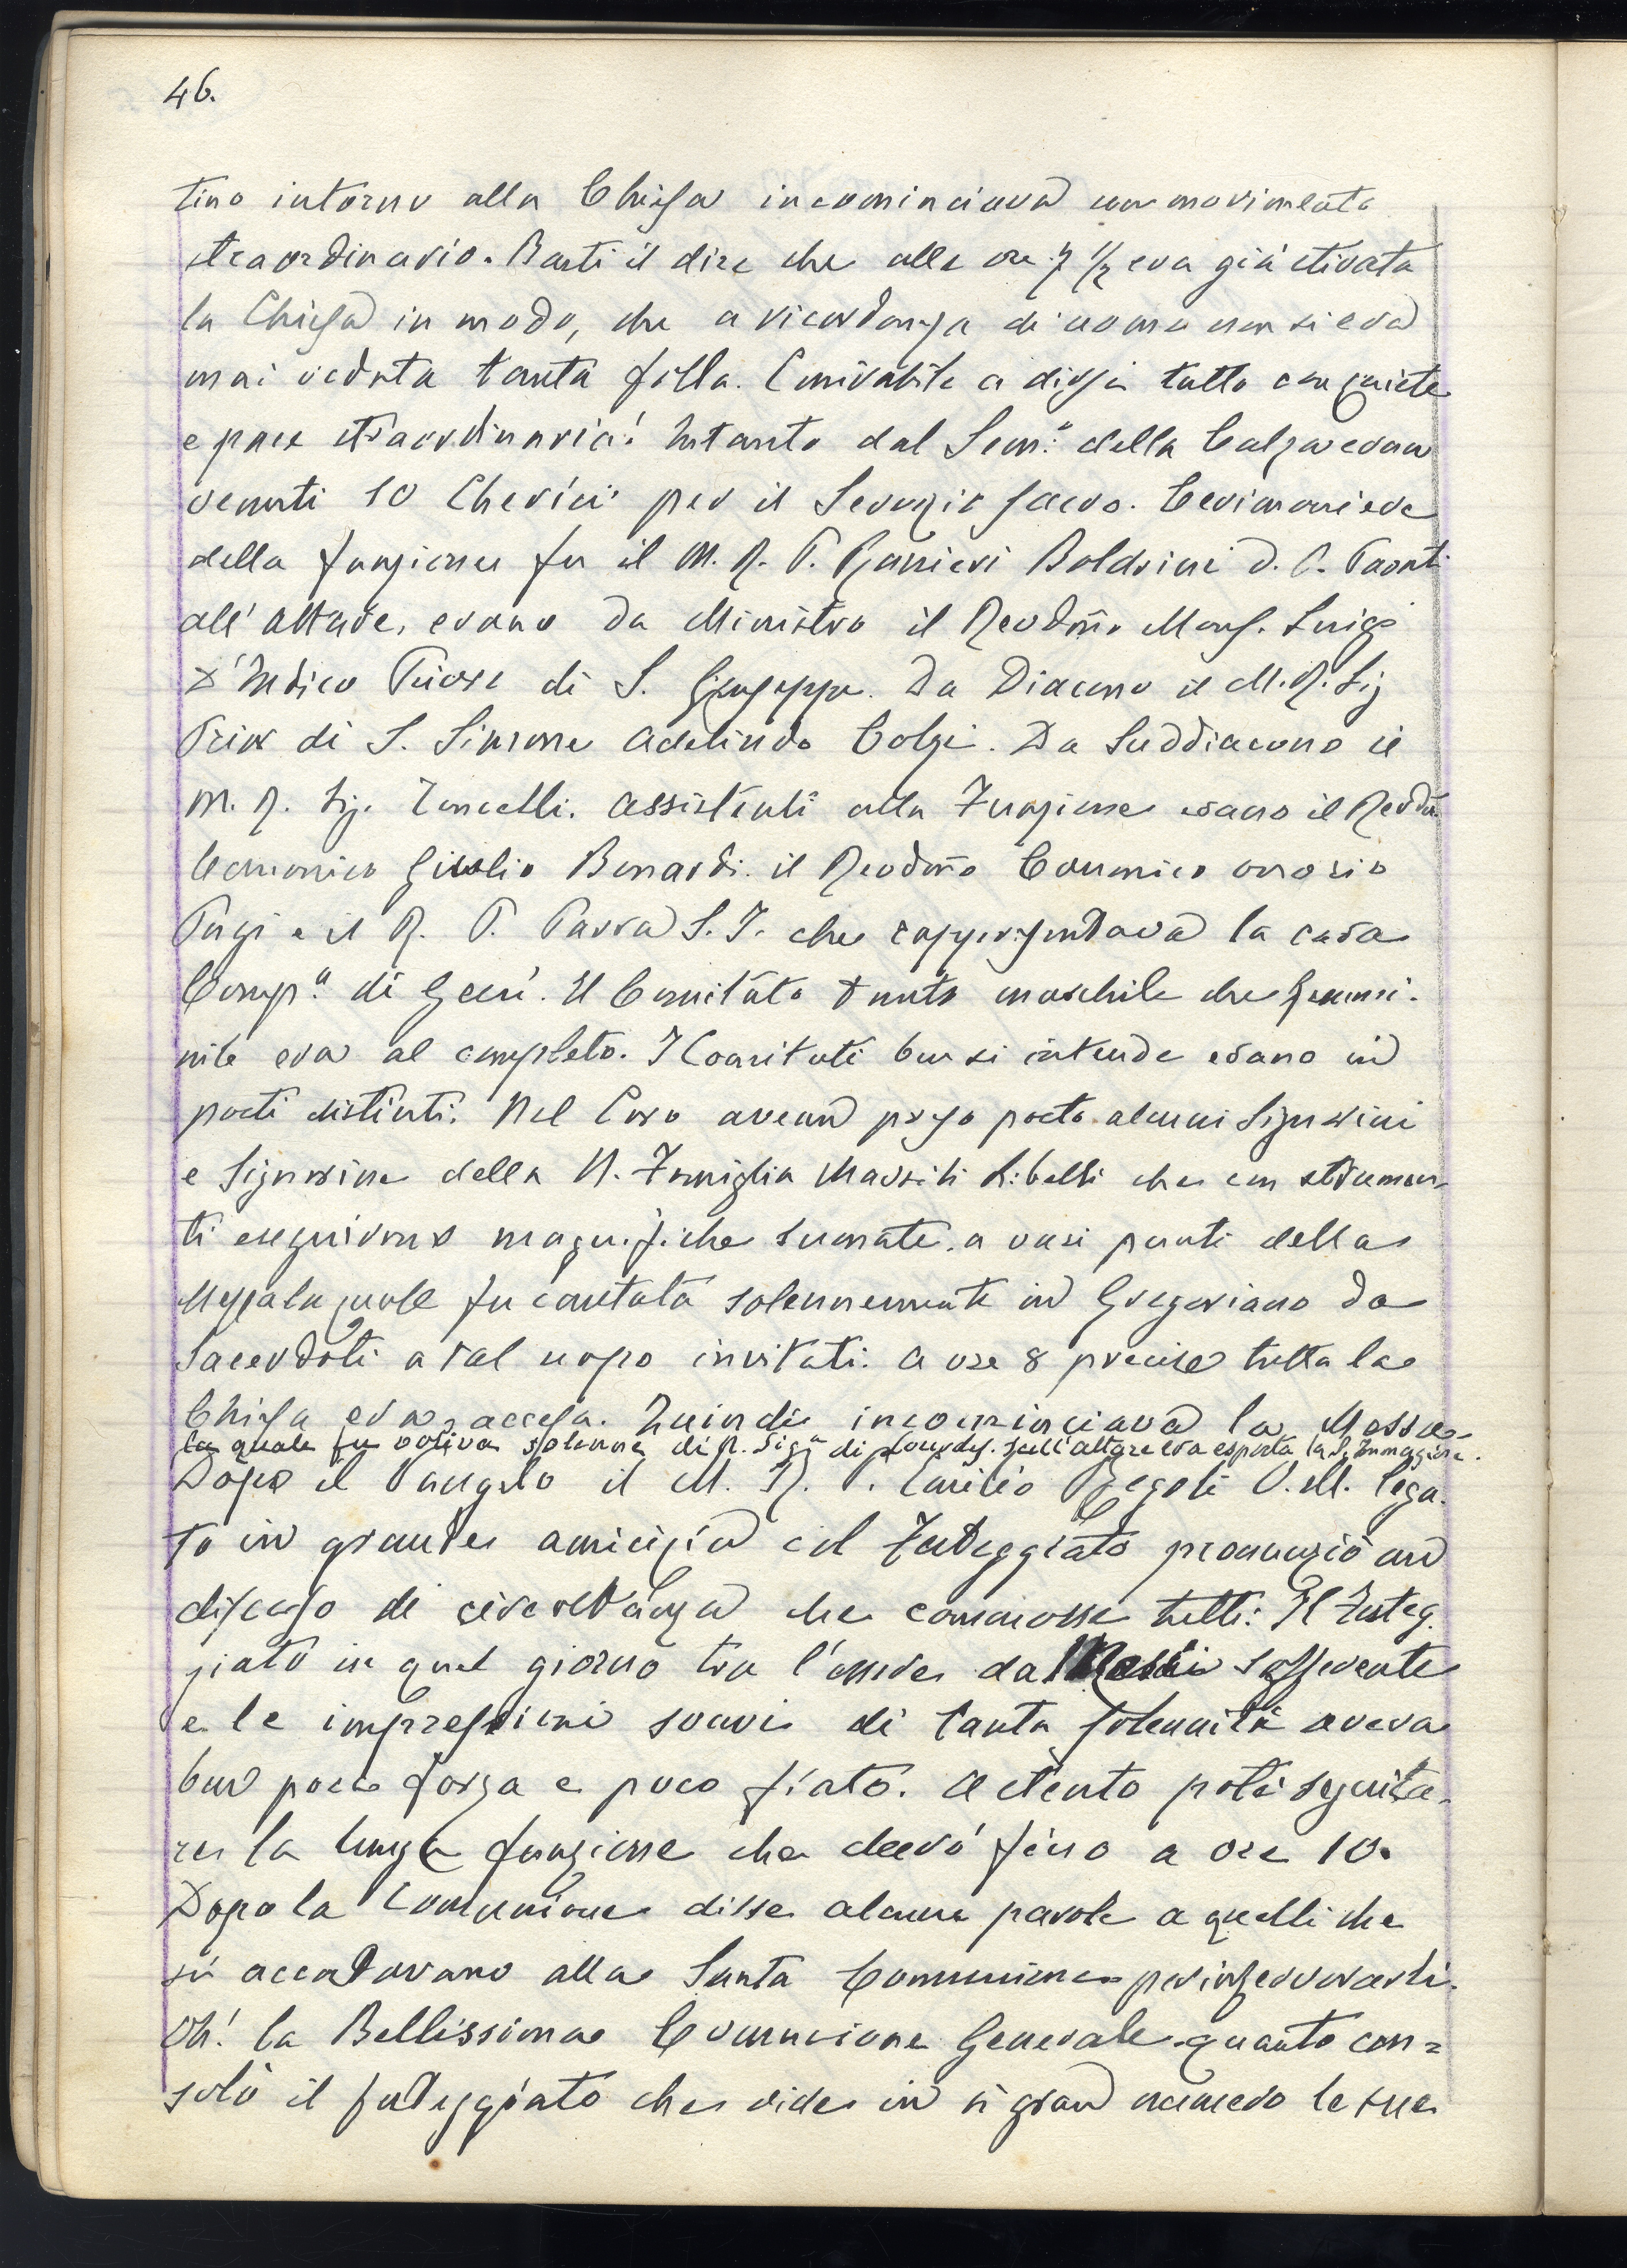 46.
tino intorno alla Chiesa incominciava un movimento
straordinario. Basti il dire che alle ore 7 1/2 era già stivata
la Chiesa in modo, che a ricordanza di uomo non si era
mai veduta tanta folla. Mirabile a dirsi tutto con quiete
e pace straordinaria! Intanto dal Sem.o della Calza eran
venuti 10 Cherici per il Servizio sacro. Cerimoniere
della funzione fu il M. R. P. Ranieri Boldrini D. P. Parati
all'altare, erano da Ministro il Revdmo Mons. Luigi
D'Indico Priore di S. Giuseppe. Da Diacono il M. R. Sig
Prior di S. Simone Adelindo Colzi. Da Suddiacono il
M. R. Sig. Toncelli. Assistenti alla Funzione erano il Revdm
Canonico Giulio Bonardi. il Revdmo Canonico onorario
Pugi e il R. P. Parra S. J. che rappresentava la cara
Comp.a di Gesù. Il Comitato tanto maschile che femmi-
nile era al completo. I Comitati ben si intende erano in
posti distinti. Nel Coro avean preso posto alcuni Signorini
e Signorine della N. Famiglia Marsili Libelli che con strumen-
ti eseguirono magnifiche suonate. a vari punti della
Messa la quale fu cantata solennemente in Gregoriano da
Sacerdoti a tal uopo invitati. A ore 8 precise tutta la
Chiesa era accesa. Quindi incominciava la Messa
la quale fu votiva solenne di N. Sig.a di Lourdes. sull'altare era esposta la S. Immagine.
Dopo il Vangelo il M. R. P. Emilio Regoli O. M. lega-
to in grande amicizia col Festeggiato pronunziò un
discorso di circostanza che commosse tutti: Il Festeg-
giato in quel giorno tra l'essere da sofferente
e le impressioni soavi di tanta solennità aveva
ben poca forza e poco fiato. A stento potè seguita-
re la lunga funzione che durò fino a ore 10.
Dopo la Comunione disse alcune parole a quelli che
si accostavano alla Santa Comunione per infervorarli.
Oh! la Bellissima Comunione Generale quanto con=
solò il festeggiato che vide in sì gran numero le sue